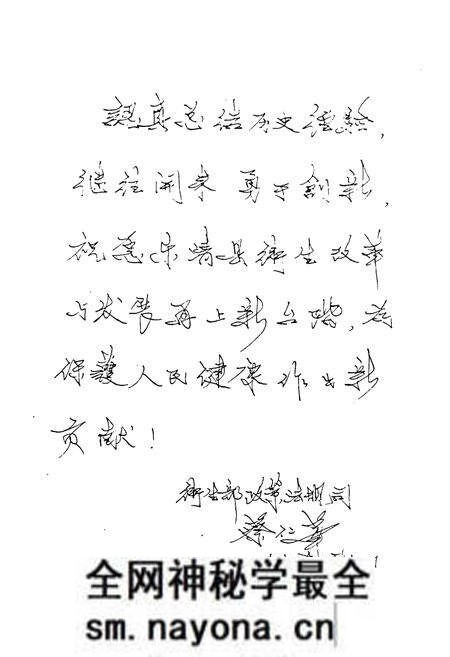 認真总结历史经验，
继往開来 勇于創新，
祝愿乐清县衛生改革
与发展再上新台階，为
保護人民健康作出新
贡献！
衛生部政策法规司
蔡仁華
全网神秘学最全
sm.nayona.cn